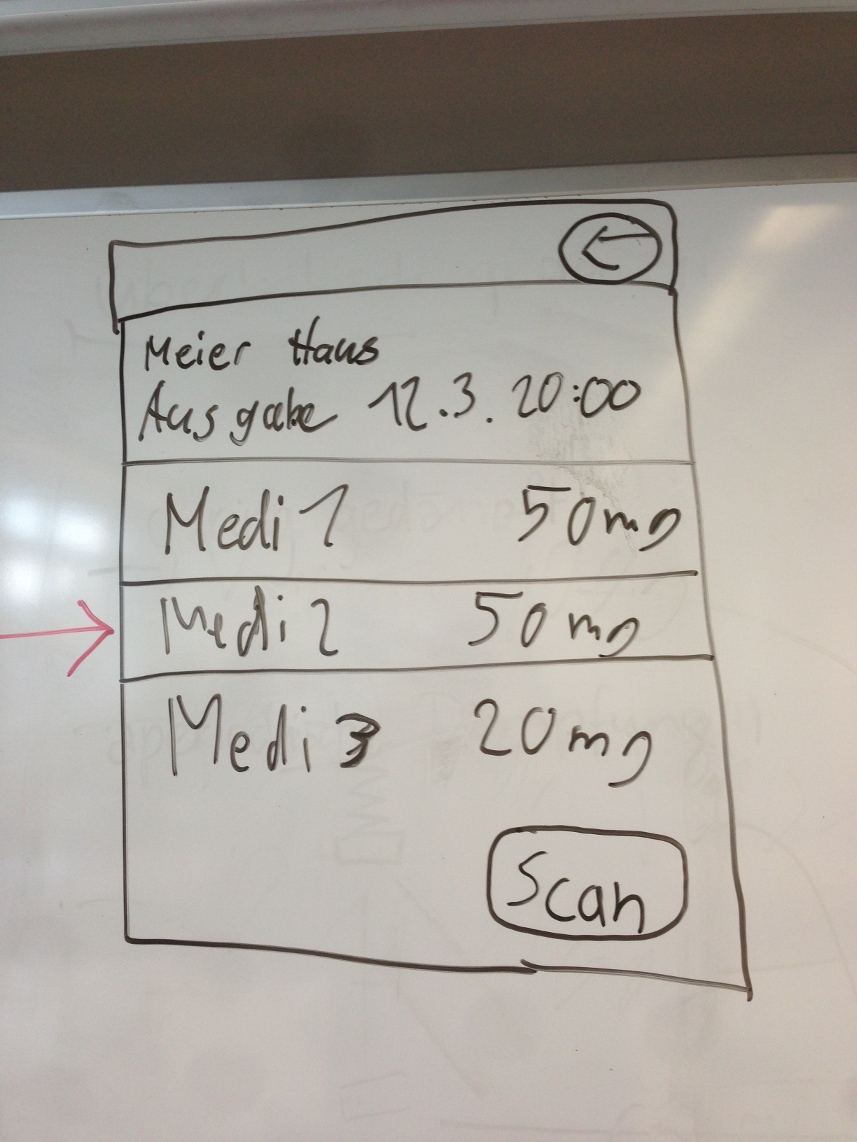 Meier Haus
Ausgabe 12.3. 20:00
Medi 1 50mg
Medi 2 50mg
Medi 3 20mg
Scan